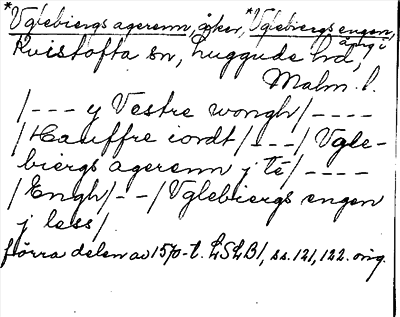 *Vglebiergs agerenn, åker, *Vglebiergs engen, äng i
Kvistofta sn, Luggude hd,
Malm. l.
/--- y Vestre wongh/----
/Hauffre iordt/---/Vgle-
biergs agerenn j té/----
/Engh/--/Vglebiergs engen
j less/
förra delen av 1570-t. LSLB1, ss. 121, 122. orig.